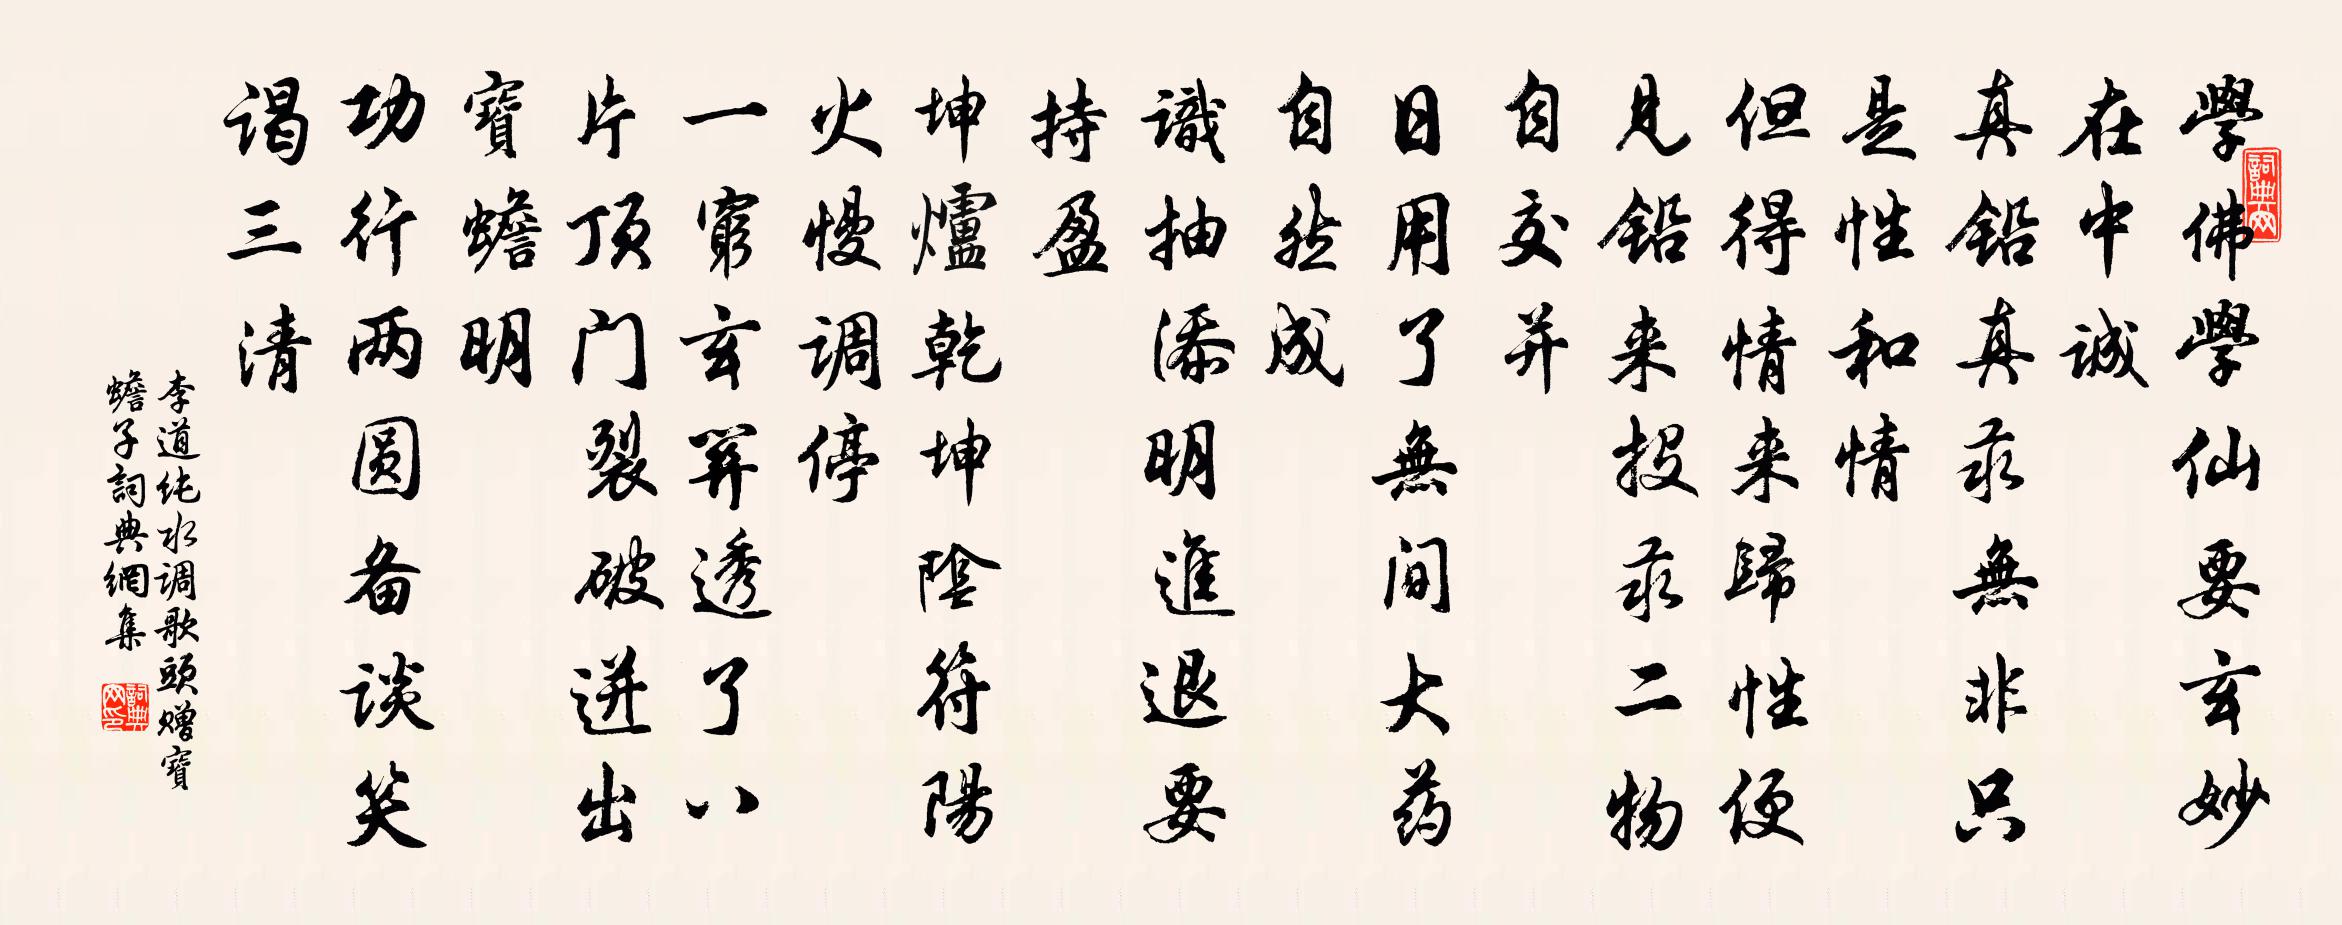 學佛學仙要玄妙
在中诚
真铅真汞無非只
是性和情
但得情来歸性便
見铅来投汞二物
自交并
日用了無间大药
自然成
識抽添明進退要
持盈
坤爐乾坤陰符陽
火慢调停
一竅玄關透了八
片顶门裂破迸出
寶蟾明
功行两圆备谈笑
谒三清
李道纯水调歌頭赠寶
蟾子詞典網集
詞典网
詞典网印